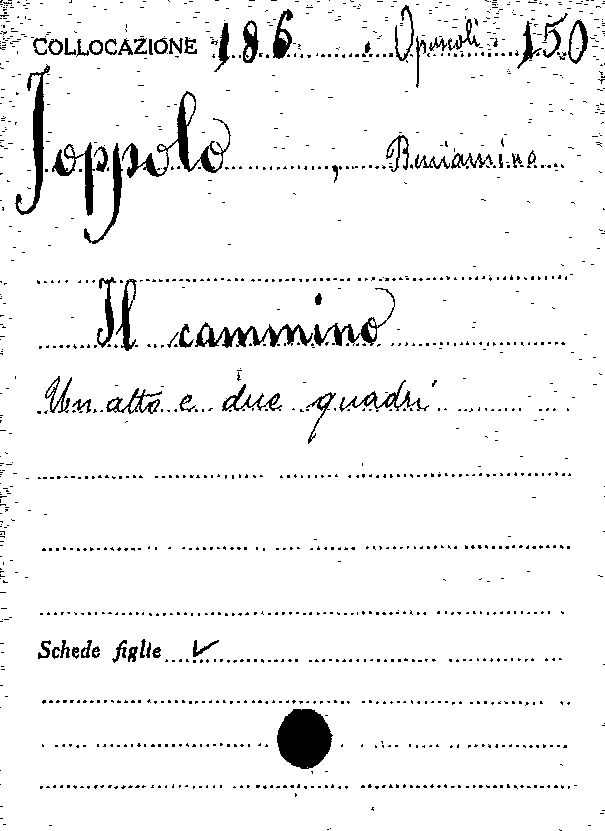 COLLOCAZIONE 186 . Opuscoli . 150
Joppolo , Beniamino
Il cammino
Un atto e due quadri
Schede figlie ✓